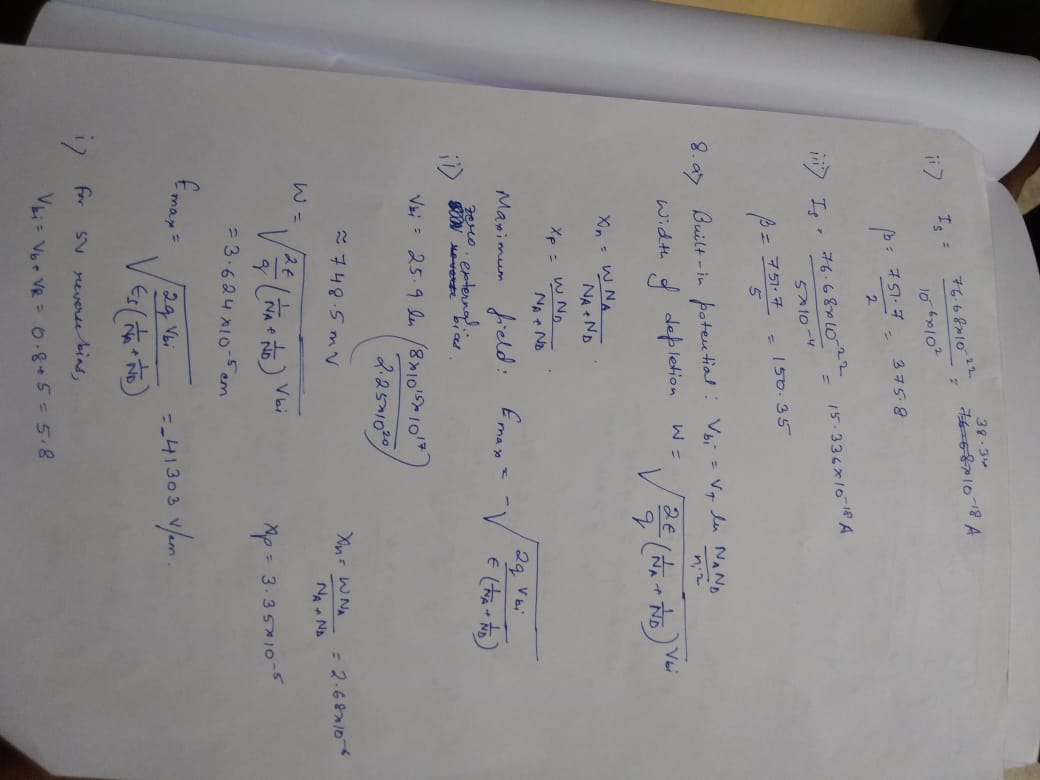 ii) I_s = 76.68×10^-22 / 10^-6×10^2 = 38.34 ×10^-18 A
β = 751.7 / 2 = 375.8
iii) I_s = 76.68×10^-22 / 5×10^-4 = 15.336×10^-18 A
β = 751.7 / 5 = 150.35
8.a) Built-in potential : V_bi = V_T ln N_A N_D / n_i^2
Width of depletion W = √(2ε/q (1/N_A + 1/N_D) V_bi)
x_n = W N_A / N_A + N_D .
x_p = W N_D / N_A + N_D .
Maximum field : E_max = -√(2q V_bi / ε (1/N_A + 1/N_D))
ii) zero external bias.
V_bi = 25.9 ln (8×10^15×10^17 / 2.25×10^20)
≈ 748.5 mV
x_n = W N_A / N_A + N_D = 2.68×10^-6
W = √(2ε/q (1/N_A + 1/N_D) V_bi)
= 3.624×10^-5 cm
x_p = 3.35×10^-5
E_max = √(2q V_bi / ε_s (1/N_A + 1/N_D)) = -41303 V/cm.
i) for 5V reverse bias,
V_bi = V_b + V_R = 0.8 + 5 = 5.8